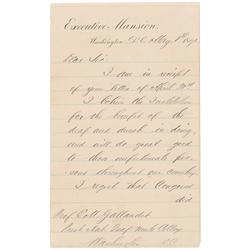 Executive Mansion,
Washington, D.C.
Dear Sir
I am in receipt
of your letter of April
I believe the Institution
for the benefit of the
deaf and dumb is doing,
and will do great good
to those unfortunate per-
sons throughout our country.
I regret that Congress
did
Prof. E. M. Gallaudet
Deaf Mute College
Washington
D.C.